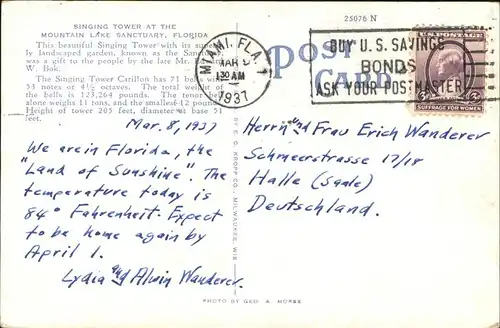 SINGING TOWER AT THE
MOUNTAIN LAKE SANCTUARY, FLORIDA
This beautiful Singing Tower with its
landscaped garden, known as the
was a gift to the people by the late Mr.
W. Bok.
The Singing Tower Carillon has 71 bells
53 notes or 4½ octaves. The total weight of
the bells is 123,264 pounds. The tenor bell
alone weighs 11 tons, and the smallest 12 pounds.
Height of tower 205 feet, diameter at base 51
feet.
25076 N
POST CARD
MIAMI, FLA.
MAR 9
AM
1937
BUY U.S. SAVINGS
BONDS
ASK YOUR POSTMASTER
U.S. POSTAGE
SUFFRAGE FOR WOMEN
Mar. 8, 1937
We are in Florida, the
"Land of Sunshine". The
temperature today is
84° Fahrenheit. Expect
to be home again by
April 1.
Lydia and Alwin Wanderer.
E. C. KROPP CO., MILWAUKEE, WIS.
Herrn und Frau Erich Wanderer
Schmeerstrasse 17/18
Halle (Saale)
Deutschland.
PHOTO BY GEO. A. MORSE